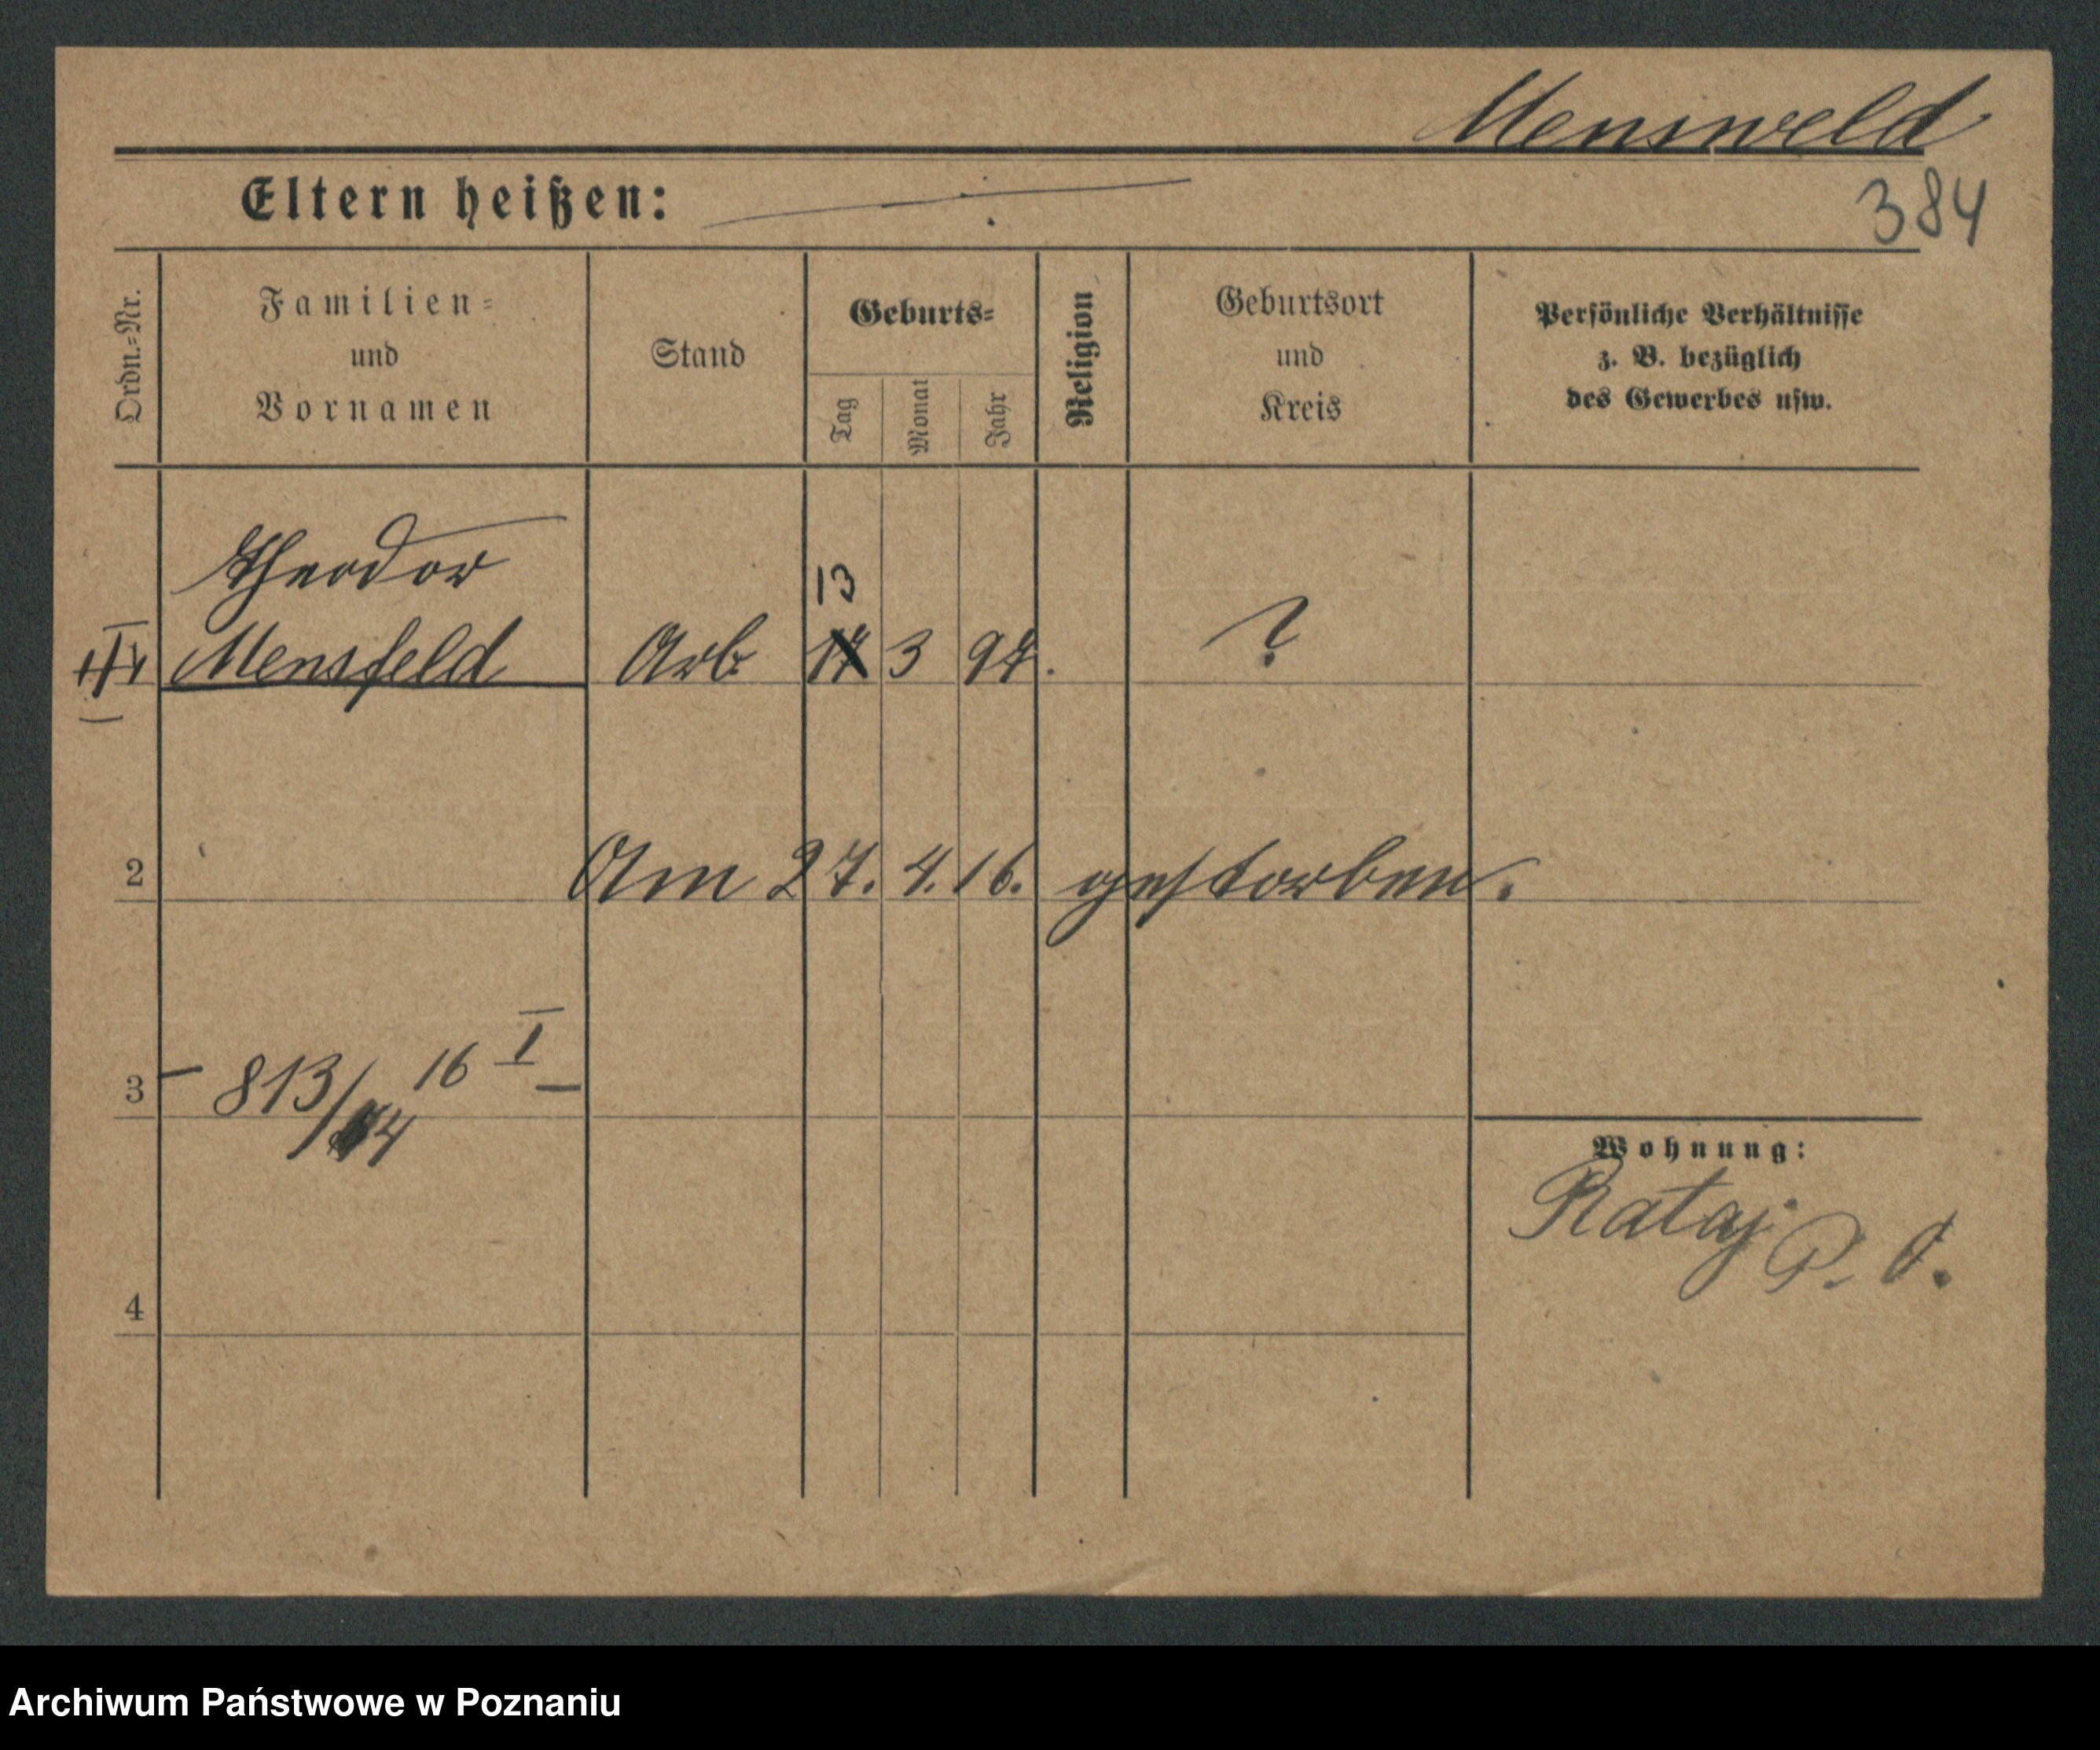 Mensweld
Eltern heißen:
384
Ordn.-Nr.
Familien-
und
Vornamen
Stand
Geburts-
Tag
Monat
Jahr
Religion
Geburtsort
und
Kreis
Persönliche Verhältnisse
z. B. bezüglich
des Gewerbes usw.
Theodor
13
Mensfeld Arb. 3 94. ?
2 Am 27. 4. 16. gestorben.
3 – 813/14 16 I –
Wohnung:
Rataj
4
Archiwum Państwowe w Poznaniu